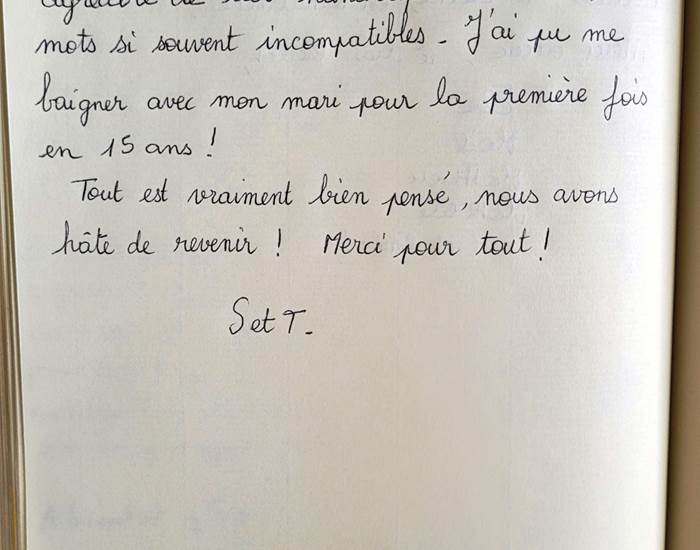 mots si souvent incompatibles - J'ai pu me
baigner avec mon mari pour la première fois
en 15 ans !
Tout est vraiment bien pensé, nous avons
hâte de revenir ! Merci pour tout !
S et T.